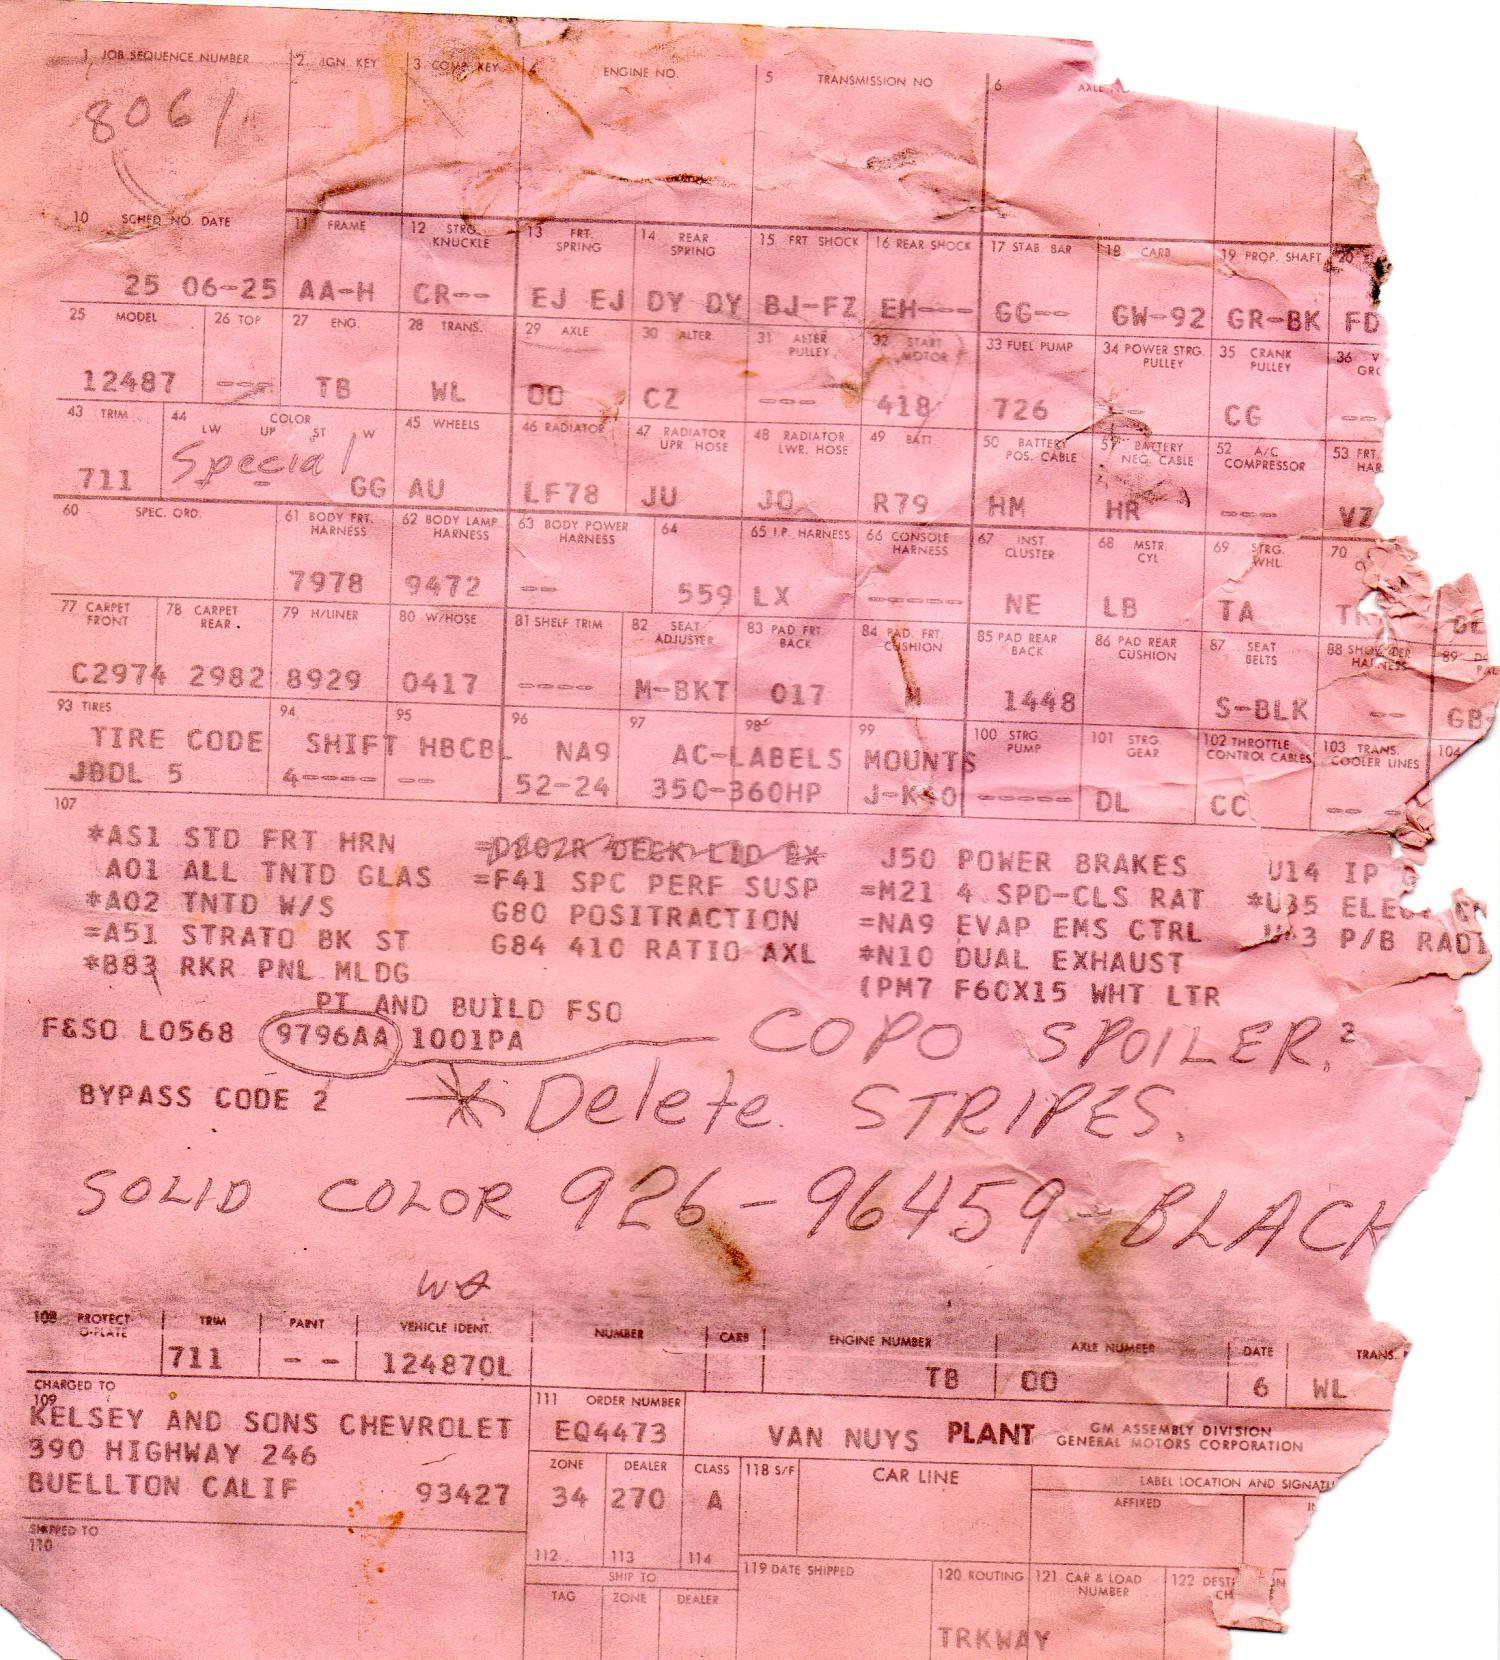 1 JOB SEQUENCE NUMBER 2 IGN KEY 3 COMP. KEY 4 ENGINE NO. 5 TRANSMISSION NO 6 AXLE NO.
8061
10 SCHED NO. DATE 11 FRAME 12 STRG. KNUCKLE 13 FRT. SPRING 14 REAR SPRING 15 FRT SHOCK 16 REAR SHOCK 17 STAB. BAR 18 CARB 19 PROP. SHAFT 20
25 06-25 AA-H CR-- EJ EJ DY DY BJ-FZ EH--- GG-- GW-92 GR-BK FD
25 MODEL 26 TOP 27 ENG. 28 TRANS. 29 AXLE 30 ALTER. 31 ALTER PULLEY 32 START MOTOR 33 FUEL PUMP 34 POWER STRG. PULLEY 35 CRANK PULLEY 36
12487 --- TB WL OO CZ --- 418 726 -- CG --
43 TRIM 44 COLOR LW UP ST W 45 WHEELS 46 RADIATOR 47 RADIATOR UPR. HOSE 48 RADIATOR LWR. HOSE 49 BATT. 50 BATTERY POS. CABLE 51 BATTERY NEG. CABLE 52 A/C COMPRESSOR 53 FRT
711 Special GG AU LF78 JU JO R79 HM HR --- VZ
60 SPEC. ORD. 61 BODY FRT. HARNESS 62 BODY LAMP HARNESS 63 BODY POWER HARNESS 64 65 I.P. HARNESS 66 CONSOLE HARNESS 67 INST. CLUSTER 68 MSTR CYL 69 STRG. WHL 70
7978 9472 -- 559 LX ----- NE LB TA
77 CARPET FRONT 78 CARPET REAR 79 H/LINER 80 W/HOSE 81 SHELF TRIM 82 SEAT ADJUSTER 83 PAD FRT. BACK 84 PAD. FRT. CUSHION 85 PAD REAR BACK 86 PAD REAR CUSHION 87 SEAT BELTS 88 SHOULDER HARNESS 89
C2974 2982 8929 0417 ---- M-BKT 017 M 1448 S-BLK -- GB
93 TIRES 94 95 96 97 98 99 100 STRG PUMP 101 STRG. GEAR 102 THROTTLE CONTROL CABLES 103 TRANS. COOLER LINES 104
TIRE CODE SHIFT HBCBL NA9 AC-LABELS MOUNTS
JBDL 5 4---- -- 52-24 350-360HP J-K40 ----- DL CC -- --
107
*AS1 STD FRT HRN =D80ZR DECK LID EX J50 POWER BRAKES U14 IP G
A01 ALL TNTD GLAS =F41 SPC PERF SUSP =M21 4 SPD-CLS RAT *U35 ELEC
*A02 TNTD W/S G80 POSITRACTION =NA9 EVAP EMS CTRL U63 P/B RADI
=A51 STRATO BK ST G84 410 RATIO AXL *N10 DUAL EXHAUST
*B83 RKR PNL MLDG (PM7 F60X15 WHT LTR
PI AND BUILD FSO
F&SO L0568 9796AA 1001PA COPO SPOILER. 2
BYPASS CODE 2 * Delete STRIPES.
SOLID COLOR 926-96459-BLACK
108 PROTECT-O-PLATE TRIM PAINT VEHICLE IDENT. NUMBER CARB ENGINE NUMBER AXLE NUMBER DATE TRANS.
711 -- 124870L TB OO 6 WL
CHARGED TO
109
KELSEY AND SONS CHEVROLET
390 HIGHWAY 246
BUELLTON CALIF 93427
SHIPPED TO
110
111 ORDER NUMBER
EQ4473
VAN NUYS PLANT GM ASSEMBLY DIVISION
GENERAL MOTORS CORPORATION
ZONE DEALER CLASS 118 S/F CAR LINE LABEL LOCATION AND
34 270 A AFFIXED
112 113 114
SHIP TO
TAG ZONE DEALER
119 DATE SHIPPED 120 ROUTING 121 CAR & LOAD NUMBER 122
TRKWAY